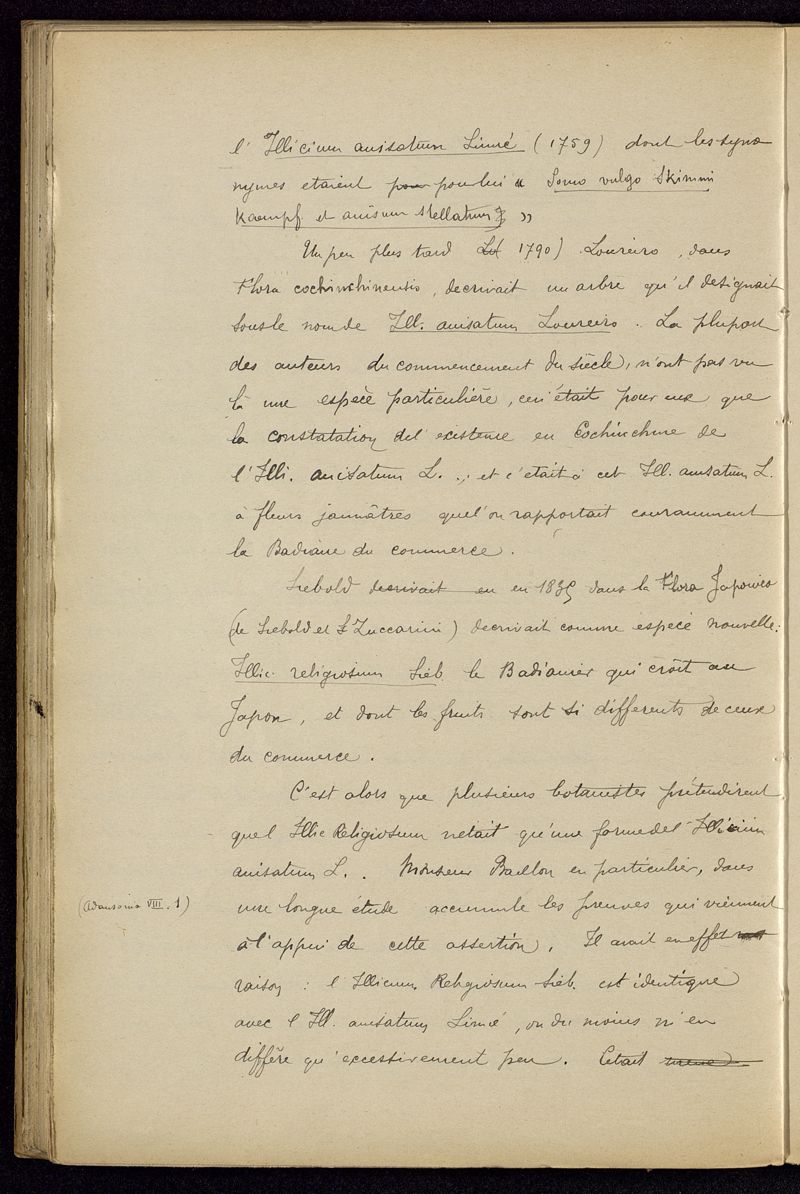 l'Illicium anisatum Linné (1759) dont les syno
nymes etaient pour lui « Somo vulgo Skimmi
Kaempf et anisum stellatum »
Un peu plus tard 1790) Loureiro, dans
Flora cochinchinensis, decrivait un arbre qu'il designait
sous le nom de Ill. anisatum Loureiro. La plupart
des auteurs du commencement du siècle, n'ont pas vu
là une espèce particulière, ceci était pour eux que
la constatation del'existence en Cochinchine de
l'Illi. anisatum L., et c'était à cet Ill. anisatum L.
à fleurs jaunâtres quel'on rapportait couramment
la Badiane du commerce.
Siebold decrivait en en 1835 dans la Flora Japonica
(de Siebold et Zuccarini) decrivait comme espèce nouvelle:
Illic. religiosum Sieb. le Badianier qui croît au
Japon, et dont les fruits sont si differents de ceux
du commerce.
C'est alors que plusieurs botanistes prétendirent
quel Illic Religiosum netait qu'une forme del'Illicium
anisatum L.. Monsieur Baillon en particulier, dans
(Adansonia VIII. 1)
une longue étude accumule les preuves qui viennent
à l'appui de cette assertion. Il avait en effet
raison : l'Illicium Religiosum Sieb. est identique
avec l Ill. anisatum Linné, ou du moins n'en
diffère qu'excessivement peu. Cetait